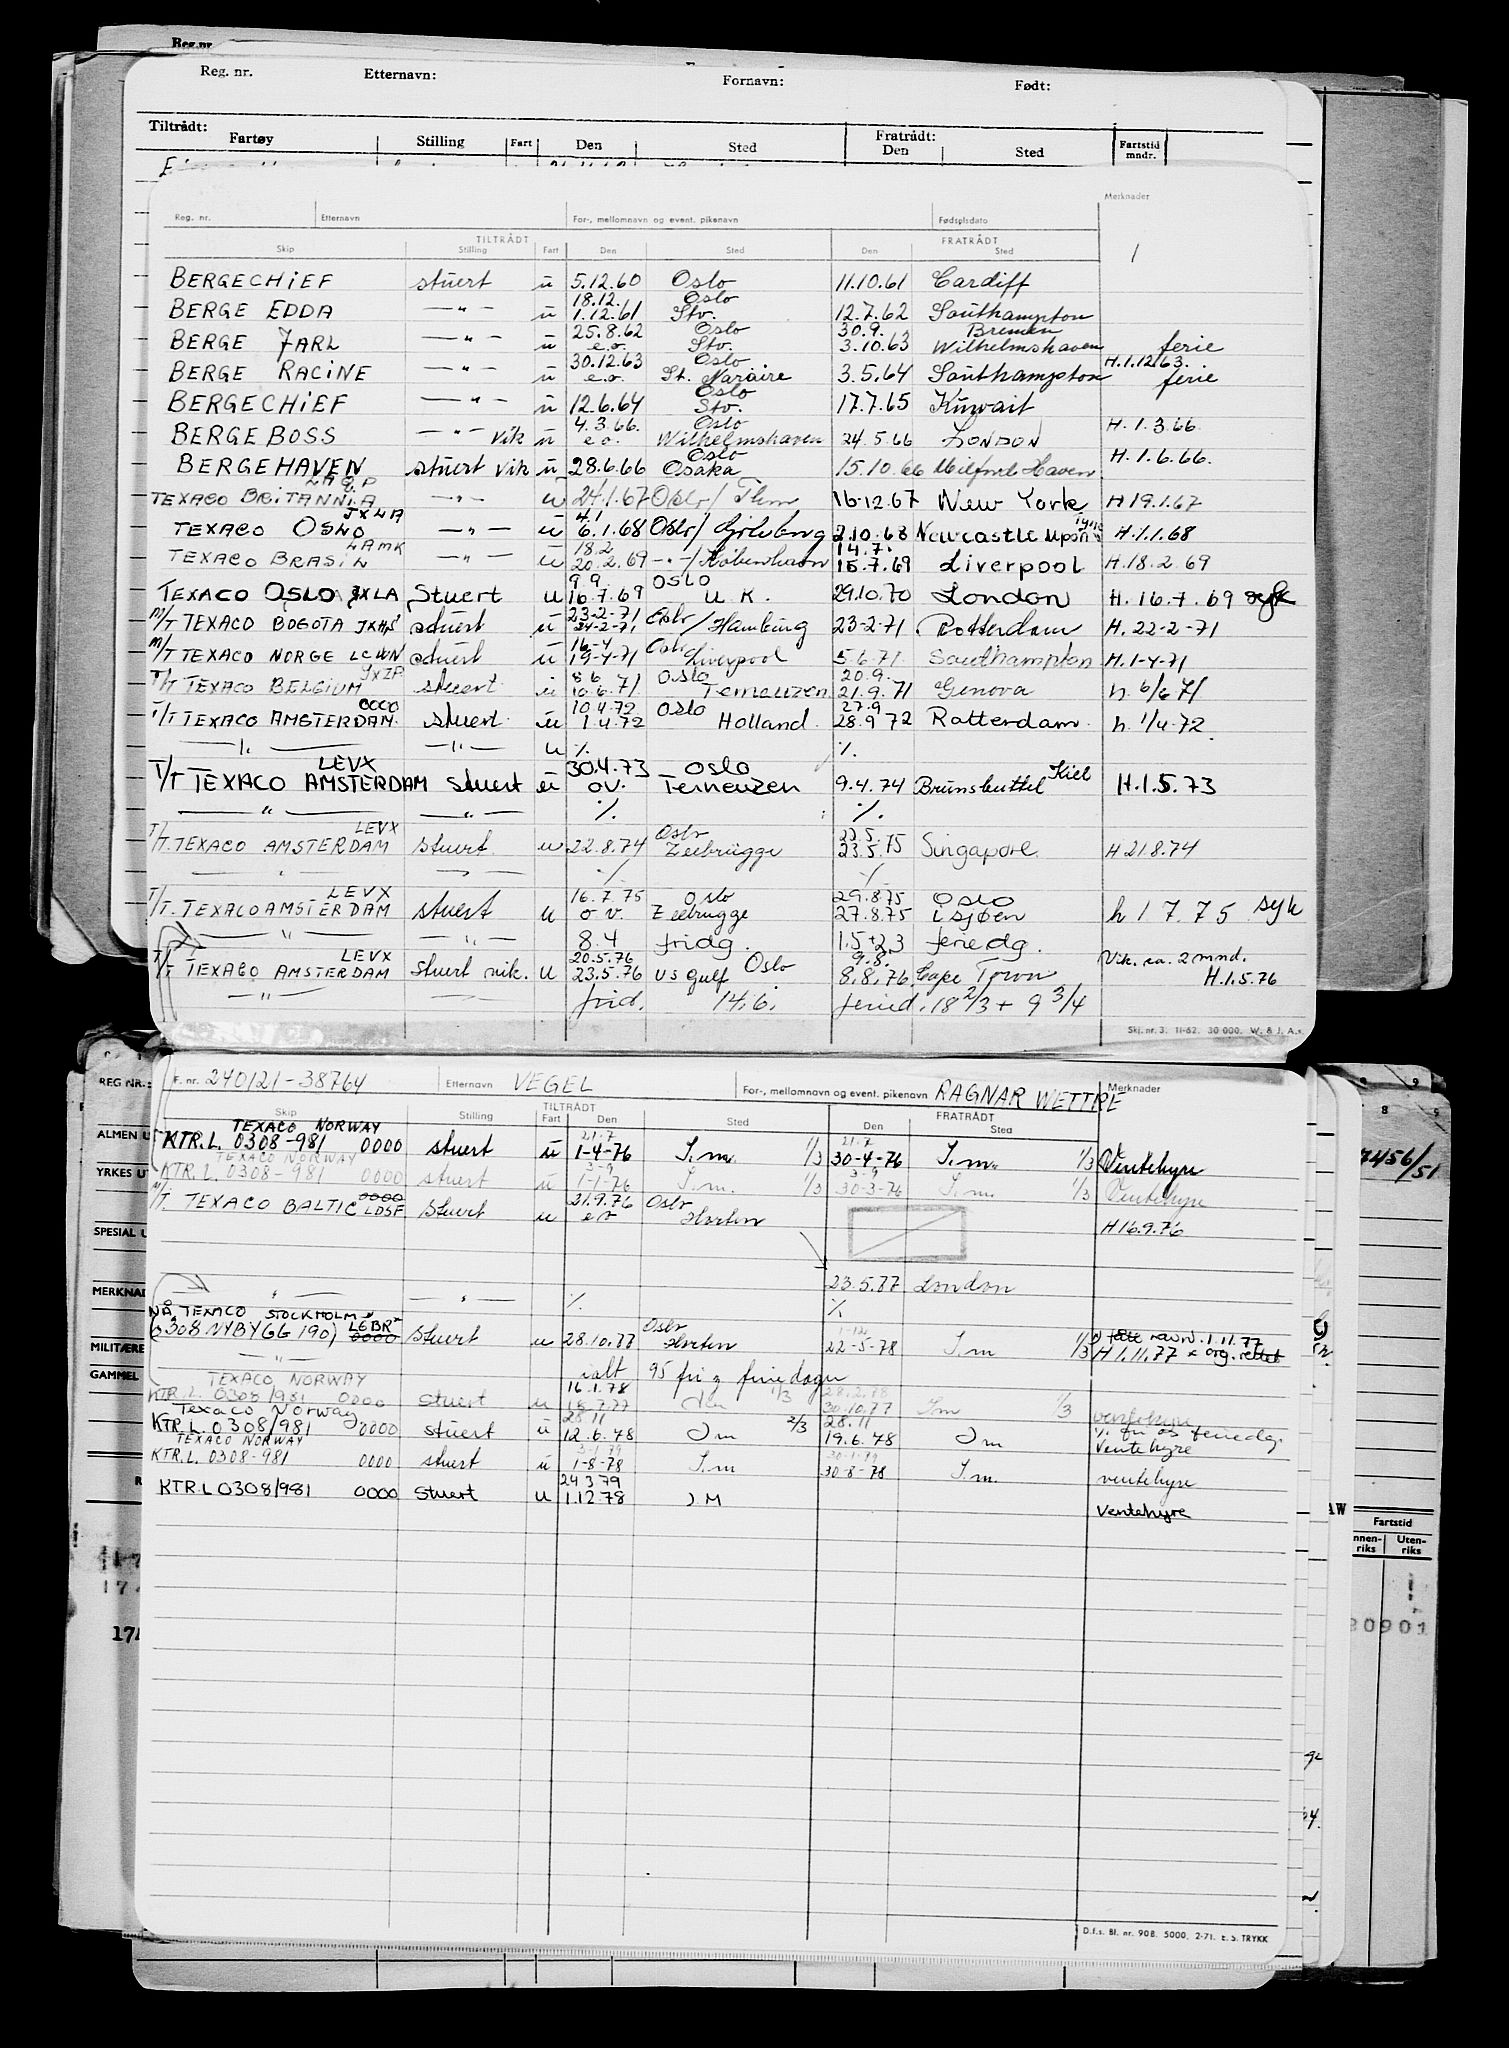 Reg.nr.
Reg. nr. Etternavn: Fornavn: Født:
Tiltrådt: Fratrådt:
Fartøy Stilling Fart Den Sted Den Sted Fartstid mndr.
Merknader
Reg. nr. Etternavn For-, mellomnavn og event. pikenavn Fødselsdato
TILTRÅDT FRATRÅDT
Skip Stilling Fart Den Sted Den Sted
1
BERGECHIEF stuert u 5.12.60 Oslo 11.10.61 Cardiff
18.12. Oslo
BERGE EDDA —"— u 1.12.61 Stv. 12.7.62 Southampton
25.8.62 Oslo 30.9. Bremen
BERGE JARL —"— u e.o. Stv. 3.10.63 Wilhelmshaven ferie
30.12.63 Oslo H.1.12.63.
BERGE RACINE —"— u e.o. St. Nazaire 3.5.64 Southampton ferie
Oslo
BERGECHIEF —"— u 12.6.64 Stv. 17.7.65 Kuwait
4.3.66. Oslo H.1.3.66
BERGEBOSS —"— vik u e.o. Wilhelmshaven 24.5.66 LONDON
Oslo H.1.6.66.
BERGEHAVEN stuert vik u 28.6.66 Osaka 15.10.66 Milford Haven
LAQP
TEXACO BRITANNIA —"— u 24.1.67 Oslo/ 16.12.67 New York H 19.1.67
JXLA 4/1 Tyne
TEXACO OSLO —"— u 6.1.68 Oslo/ Gøteborg 2.10.68 Newcastle upon H.1.1.68
LAMK 18.2 14.7.
TEXACO BRASIL —"— u 20.2.69 —"—/København 15.7.69 Liverpool H.18.2.69
9.9. OSLO
TEXACO OSLO JXLA Stuert u 16.7.69 U.K. 29.10.70 London H.16.7.69 syk
23-2-71
M/T TEXACO BOGOTA stuert u 24-2-71 Oslo/Hamburg 23-2-71 Rotterdam H.22-2-71
16-4 Oslo
M/T TEXACO NORGE LCWN stuert u 19-4-71 Liverpool 5.6.71 Southampton H.1-4-71
JXIP 8.6 Oslo 20.9.
T/T TEXACO BELGIUM stuert u 10.6.71 Terneuzen 21.9.71 Genova h. 6/6 71
0000 10.4.72 Oslo 27.9
T/T TEXACO AMSTERDAM. stuert. u 1.4.72 Holland. 28.9.72 Rotterdam. h. 1/4.72
—"— —"— u % %
LEVX 30.4.73 Oslo Kiel
T/T TEXACO AMSTERDAM stuert u ov. Terneuzen 9.4.74 Brunsbuttel H.1.5.73
—"— —"— % %
LEVX Oslo 22.5.
T/T. TEXACO AMSTERDAM stuert u 22.8.74 Zeebrügge 23.5.75 Singapore. H 21.8.74
" —"— % %
LEVX 16.7.75 Oslo 29.8.75 OSLO
T/T. TEXACO AMSTERDAM stuert u o.v. Zeebrugge 27.8.75 i sjøen h 1 7.75 syk
—"— —"— 8.4 fridg. 1.5+2,3 feriedg.
LEVX 20.5.76 Oslo 9.8. Vik. ca. 2 mnd.
T/T TEXACO AMSTERDAM stuert vik. u 23.5.76 US Gulf 8.8.76 Cape Town H.1.5.76
—"— —"— frid. 14.6. feried. 18 2/3 + 9 3/4
Skj. nr. 3. 11-62. 30 000. W. & J. A.s.
F. nr. 240121-38764 Etternavn VEGEL For-, mellomnavn og event. pikenavn RAGNAR WETTRE Merknader
TILTRÅDT FRATRÅDT
Skip Stilling Fart Den Sted Den Sted
TEXACO NORWAY 21.7 21.7
KTR.L. 0308-981 0000 stuert u 1-4-76 I.m. 1/3 30-4-76 I.m. 1/3 Ventehyre
TEXACO NORWAY 3-9 3-9
KTR.L. 0308-981 0000 stuert u 1-1-76 I.m. 1/3 30-3-76 I.m. 1/3 Ventehyre
0000 21.9.76 Oslo
M/T. TEXACO BALTIC LDSF Stuert u e.o Horten H 16.9.76
23.5.77 London
" —"— % %
NÅ, TEXACO STOCKHOLM LGBR
(0308 NYBYGG 190) 0000 Stuert u 28.10.77 Oslo Horten 1-12 22-5-78 I.m 1/3 navn. 1.11.77
—"— H 1.11.77 x org. rettet
ialt 95 fri og feriedager
TEXACO NORWAY 16.1.78 28.2.78
KTR.L. 0308/981 0000 stuert u 18.7.77 1/3 30.10.77 Im 1/3 ventehyre
Texaco Norway 28.11 28.11 % fri og feriedg.
KTR.L. 0308/981 0000 stuert u 12.6.78 Im 2/3 19.6.78 Im Ventehyre
TEXACO NORWAY 3-1-79 30-1-79
KTR.L. 0308-981 0000 stuert u 1-8-78 I.m 30-8-78 I.m. ventehyre
24.3.79
KTR.L 0308/981 0000 stuert u 1.12.78 IM Ventehyre
D.f.s. Bl. nr. 90B. 5000, 2-71. E.S. TRYKK
REG NR.:
ALMEN U
YRKES UT
SPECIAL U
MERKNAD
MILITÆRE
GAMMEL
7456/51
Fartstid
Uten-riks
20901